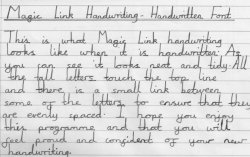 Magic Link Handwriting - Handwritten Font
This is what Magic Link handwriting
looks like when it is handwritten. As
you can see it looks neat and tidy. All
the tall letters touch the top line
and there is a small link between
some of the letters to ensure that they
are evenly spaced. I hope you enjoy
this programme and that you will
feel proud and confident of your new
handwriting.